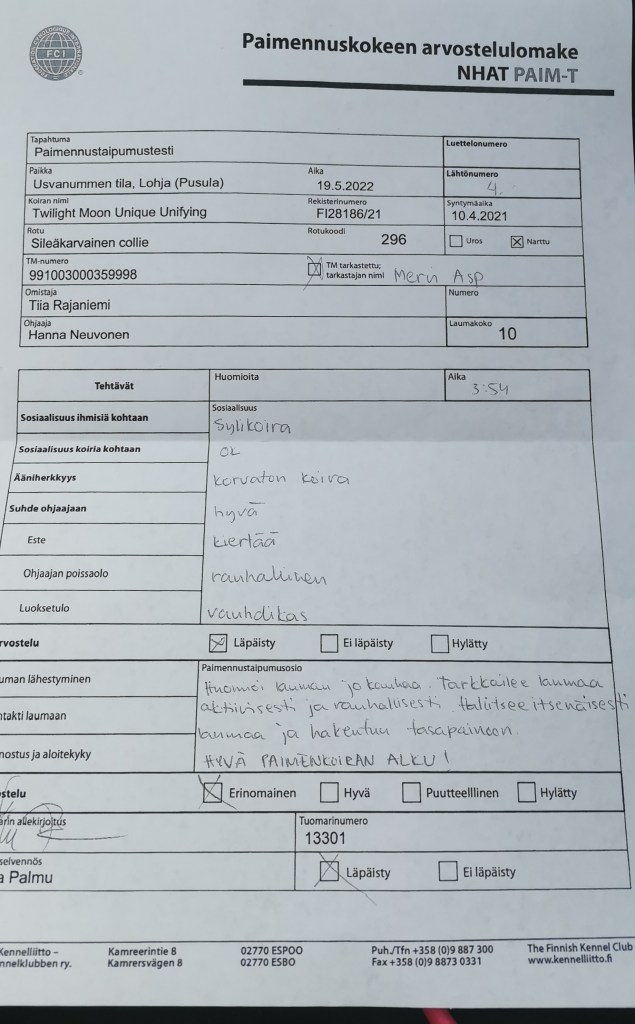 FCI
Paimennuskokeen arvostelulomake
NHAT PAIM-T
Tapahtuma
Paimennustaipumustesti
Luettelonumero
Paikka
Usvanummen tila, Lohja (Pusula)
Aika
19.5.2022
Lähtönumero
4.
Koiran nimi
Twilight Moon Unique Unifying
Rekisterinumero
FI28186/21
Syntymäaika
10.4.2021
Rotu
Sileäkarvainen collie
Rotukoodi
296
Uros
Narttu
TM-numero
991003000359998
TM tarkastettu;
tarkastajan nimi
Meru Asp
Omistaja
Tiia Rajaniemi
Numero
Ohjaaja
Hanna Neuvonen
Laumakoko
10
Tehtävät
Huomioita
Aika
3:54
Sosiaalisuus ihmisiä kohtaan
Sosiaalisuus
Sylikoira
Sosiaalisuus koiria kohtaan
OK
Ääniherkkyys
korvaton koira
Suhde ohjaajaan
hyvä
Este
kiertää
Ohjaajan poissaolo
rauhallinen
Luoksetulo
vauhdikas
rvostelu
Läpäisty
Ei läpäisty
Hylätty
uman lähestyminen
Paimennustaipumusosio
Huomioi lauman jo kaukaa. Tarkkailee laumaa
ntakti laumaan
aktiivisesti ja rauhallisesti. Hallitsee itsenäisesti
laumaa ja hakeutuu tasapainoon.
nostus ja aloitekyky
HYVÄ PAIMENKOIRAN ALKU!
ostelu
Erinomainen
Hyvä
Puutteelllinen
Hylätty
arin allekirjoitus
Tuomarinumero
13301
selvennös
a Palmu
Läpäisty
Ei läpäisty
Kennelliitto –
nnelklubben ry.
Kamreerintie 8
Kamrersvägen 8
02770 ESPOO
02770 ESBO
Puh./Tfn +358 (0)9 887 300
Fax +358 (0)9 8873 0331
The Finnish Kennel Club
www.kennelliitto.fi